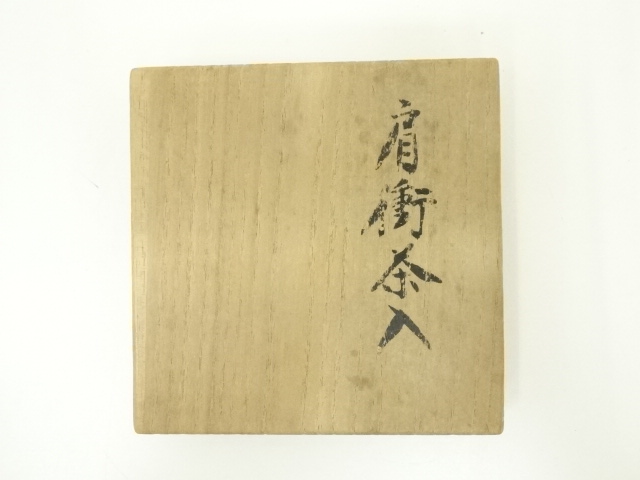 肩衝茶入